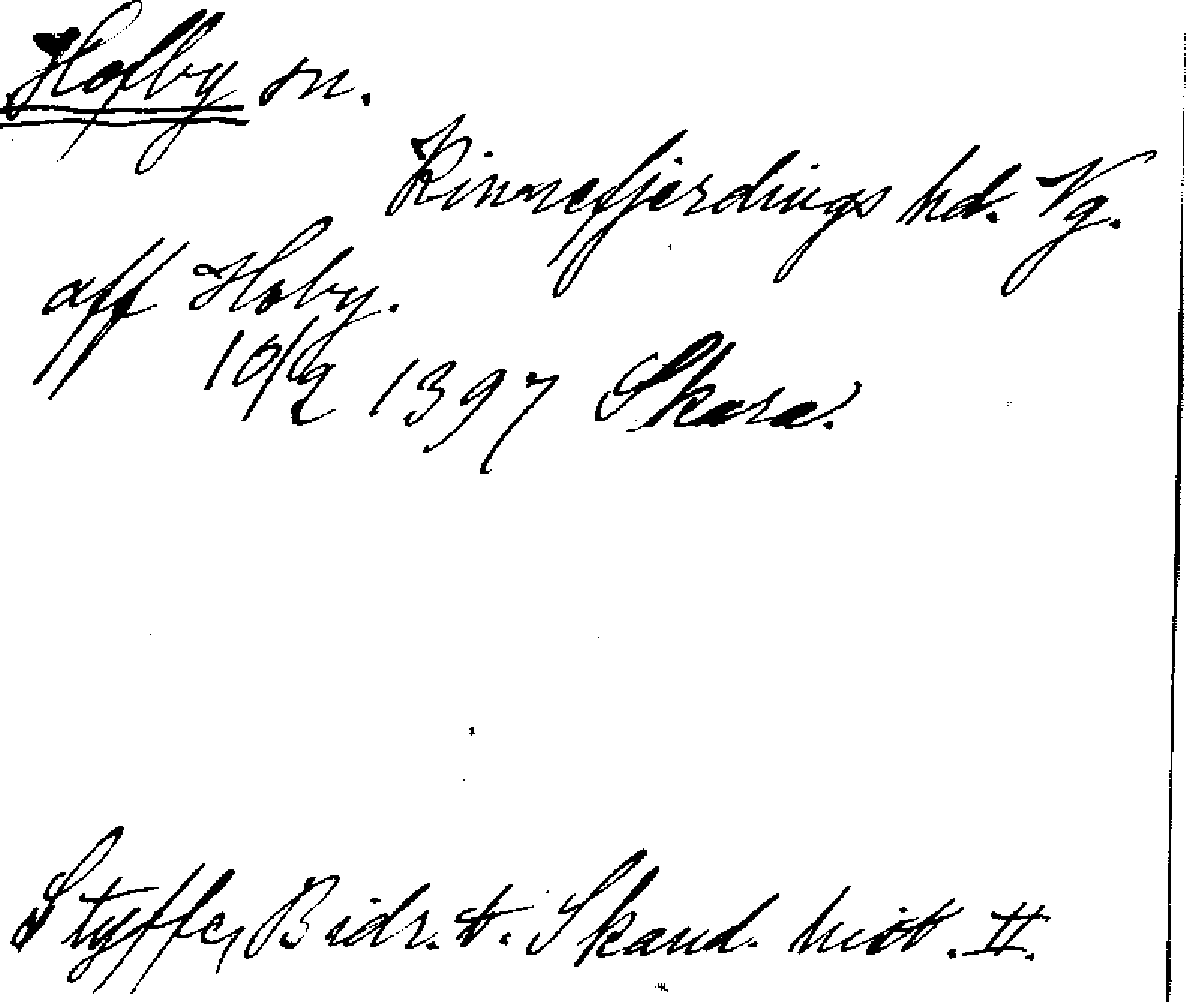 Hofby sn.
Kinnefjerdings hd. Vg.
aff Hoby.
10/2 1397 Skara.
Styffe, Bidr. t. Skand. hist. II.